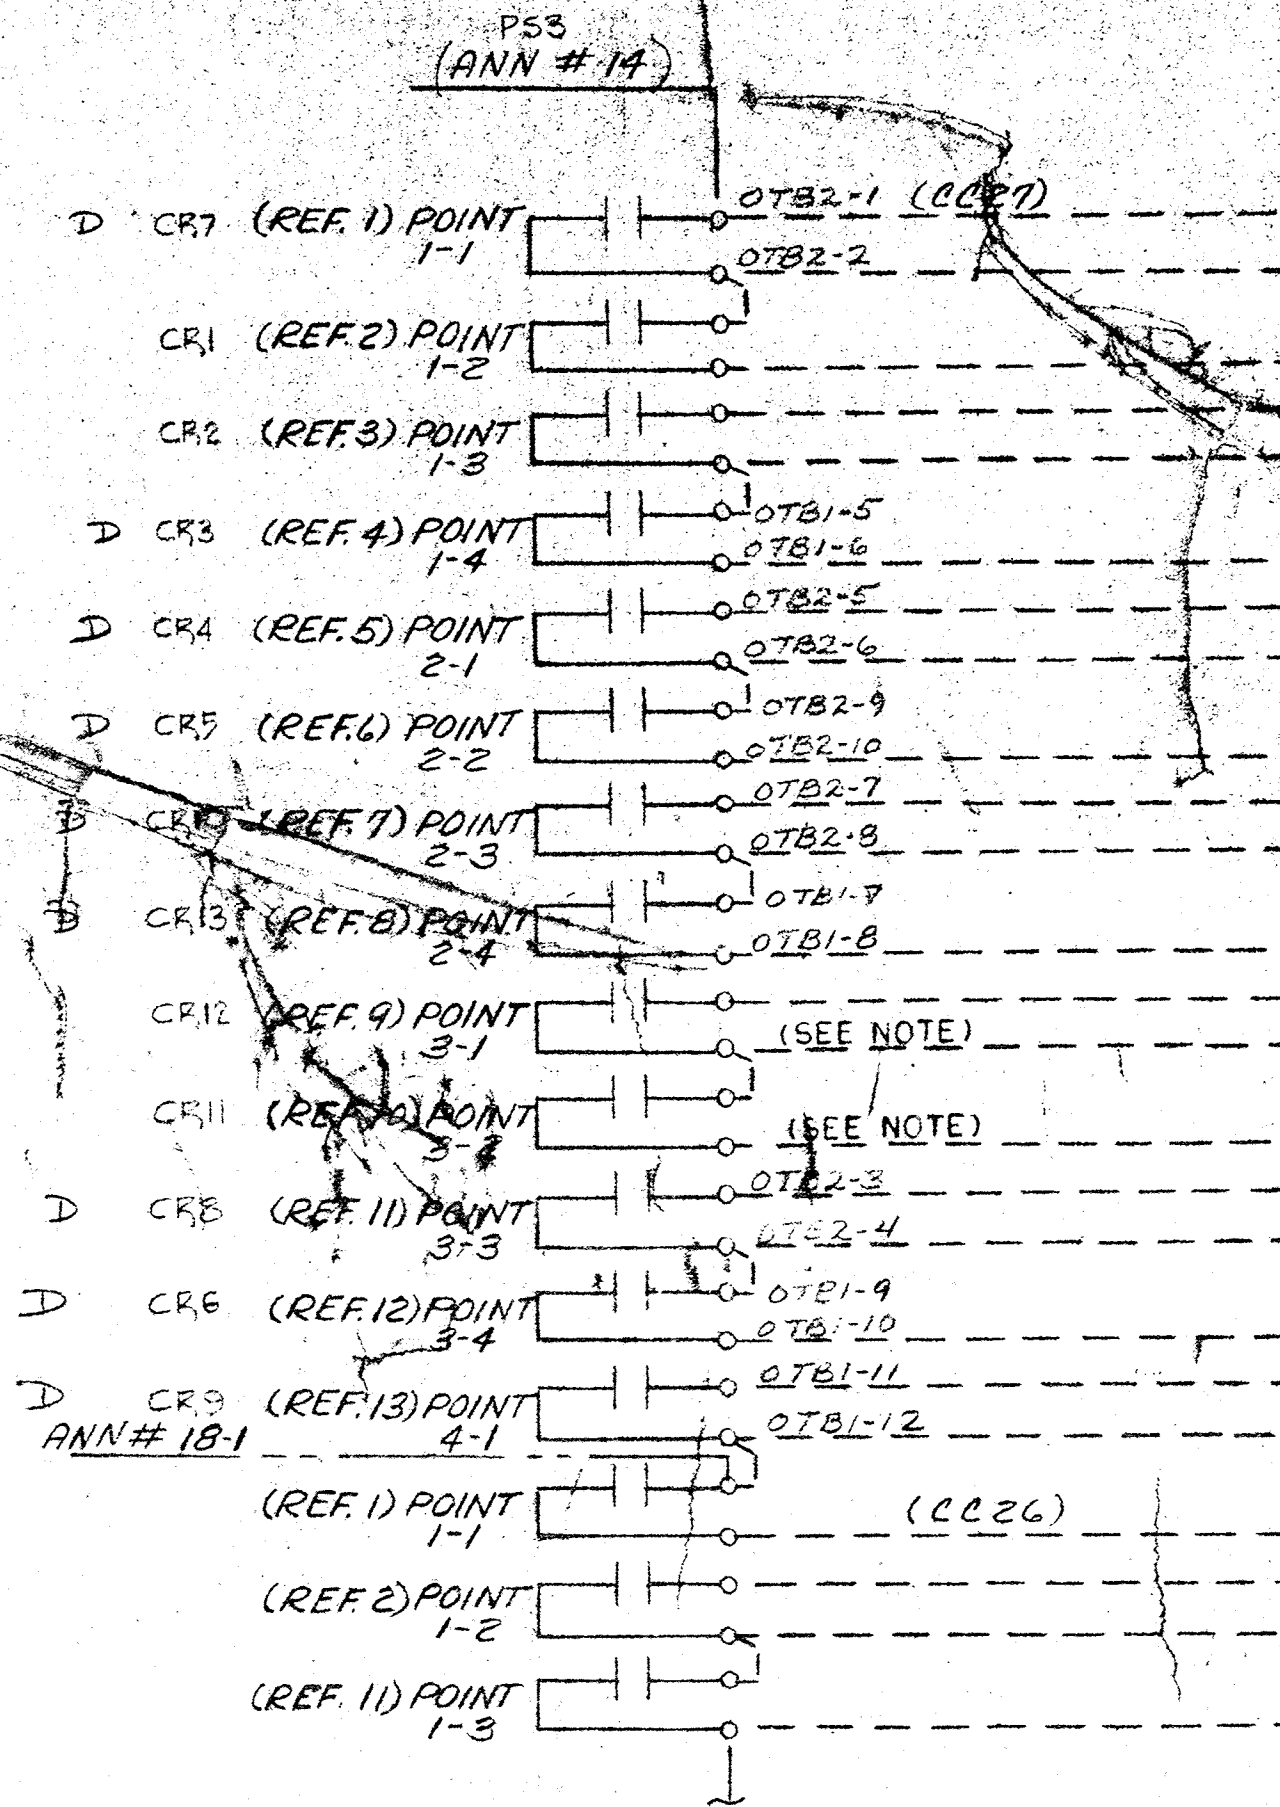 PS3
(ANN # 14)
D CR7 (REF. 1) POINT 1-1 OTB2-1 (CC27)
OTB2-2
CR1 (REF. 2) POINT 1-2
CR2 (REF. 3) POINT 1-3
D CR3 (REF. 4) POINT 1-4 OTB1-5
OTB1-6
D CR4 (REF. 5) POINT 2-1 OTB2-5
OTB2-6
D CR5 (REF. 6) POINT 2-2 OTB2-9
OTB2-10
D (REF. 7) POINT 2-3 OTB2-7
OTB2-8
D CR13 (REF. 8) POINT 2-4 OTB1-7
OTB1-8
CR12 (REF. 9) POINT 3-1
(SEE NOTE)
CR11 (REF. 10) POINT 3-2
(SEE NOTE)
D CR8 (REF. 11) POINT 3-3 OTB2-3
OTB2-4
D CR6 (REF. 12) POINT 3-4 OTB1-9
OTB1-10
D CR9 (REF. 13) POINT 4-1 OTB1-11
OTB1-12
ANN # 18-1
(REF. 1) POINT 1-1 (CC26)
(REF. 2) POINT 1-2
(REF. 11) POINT 1-3